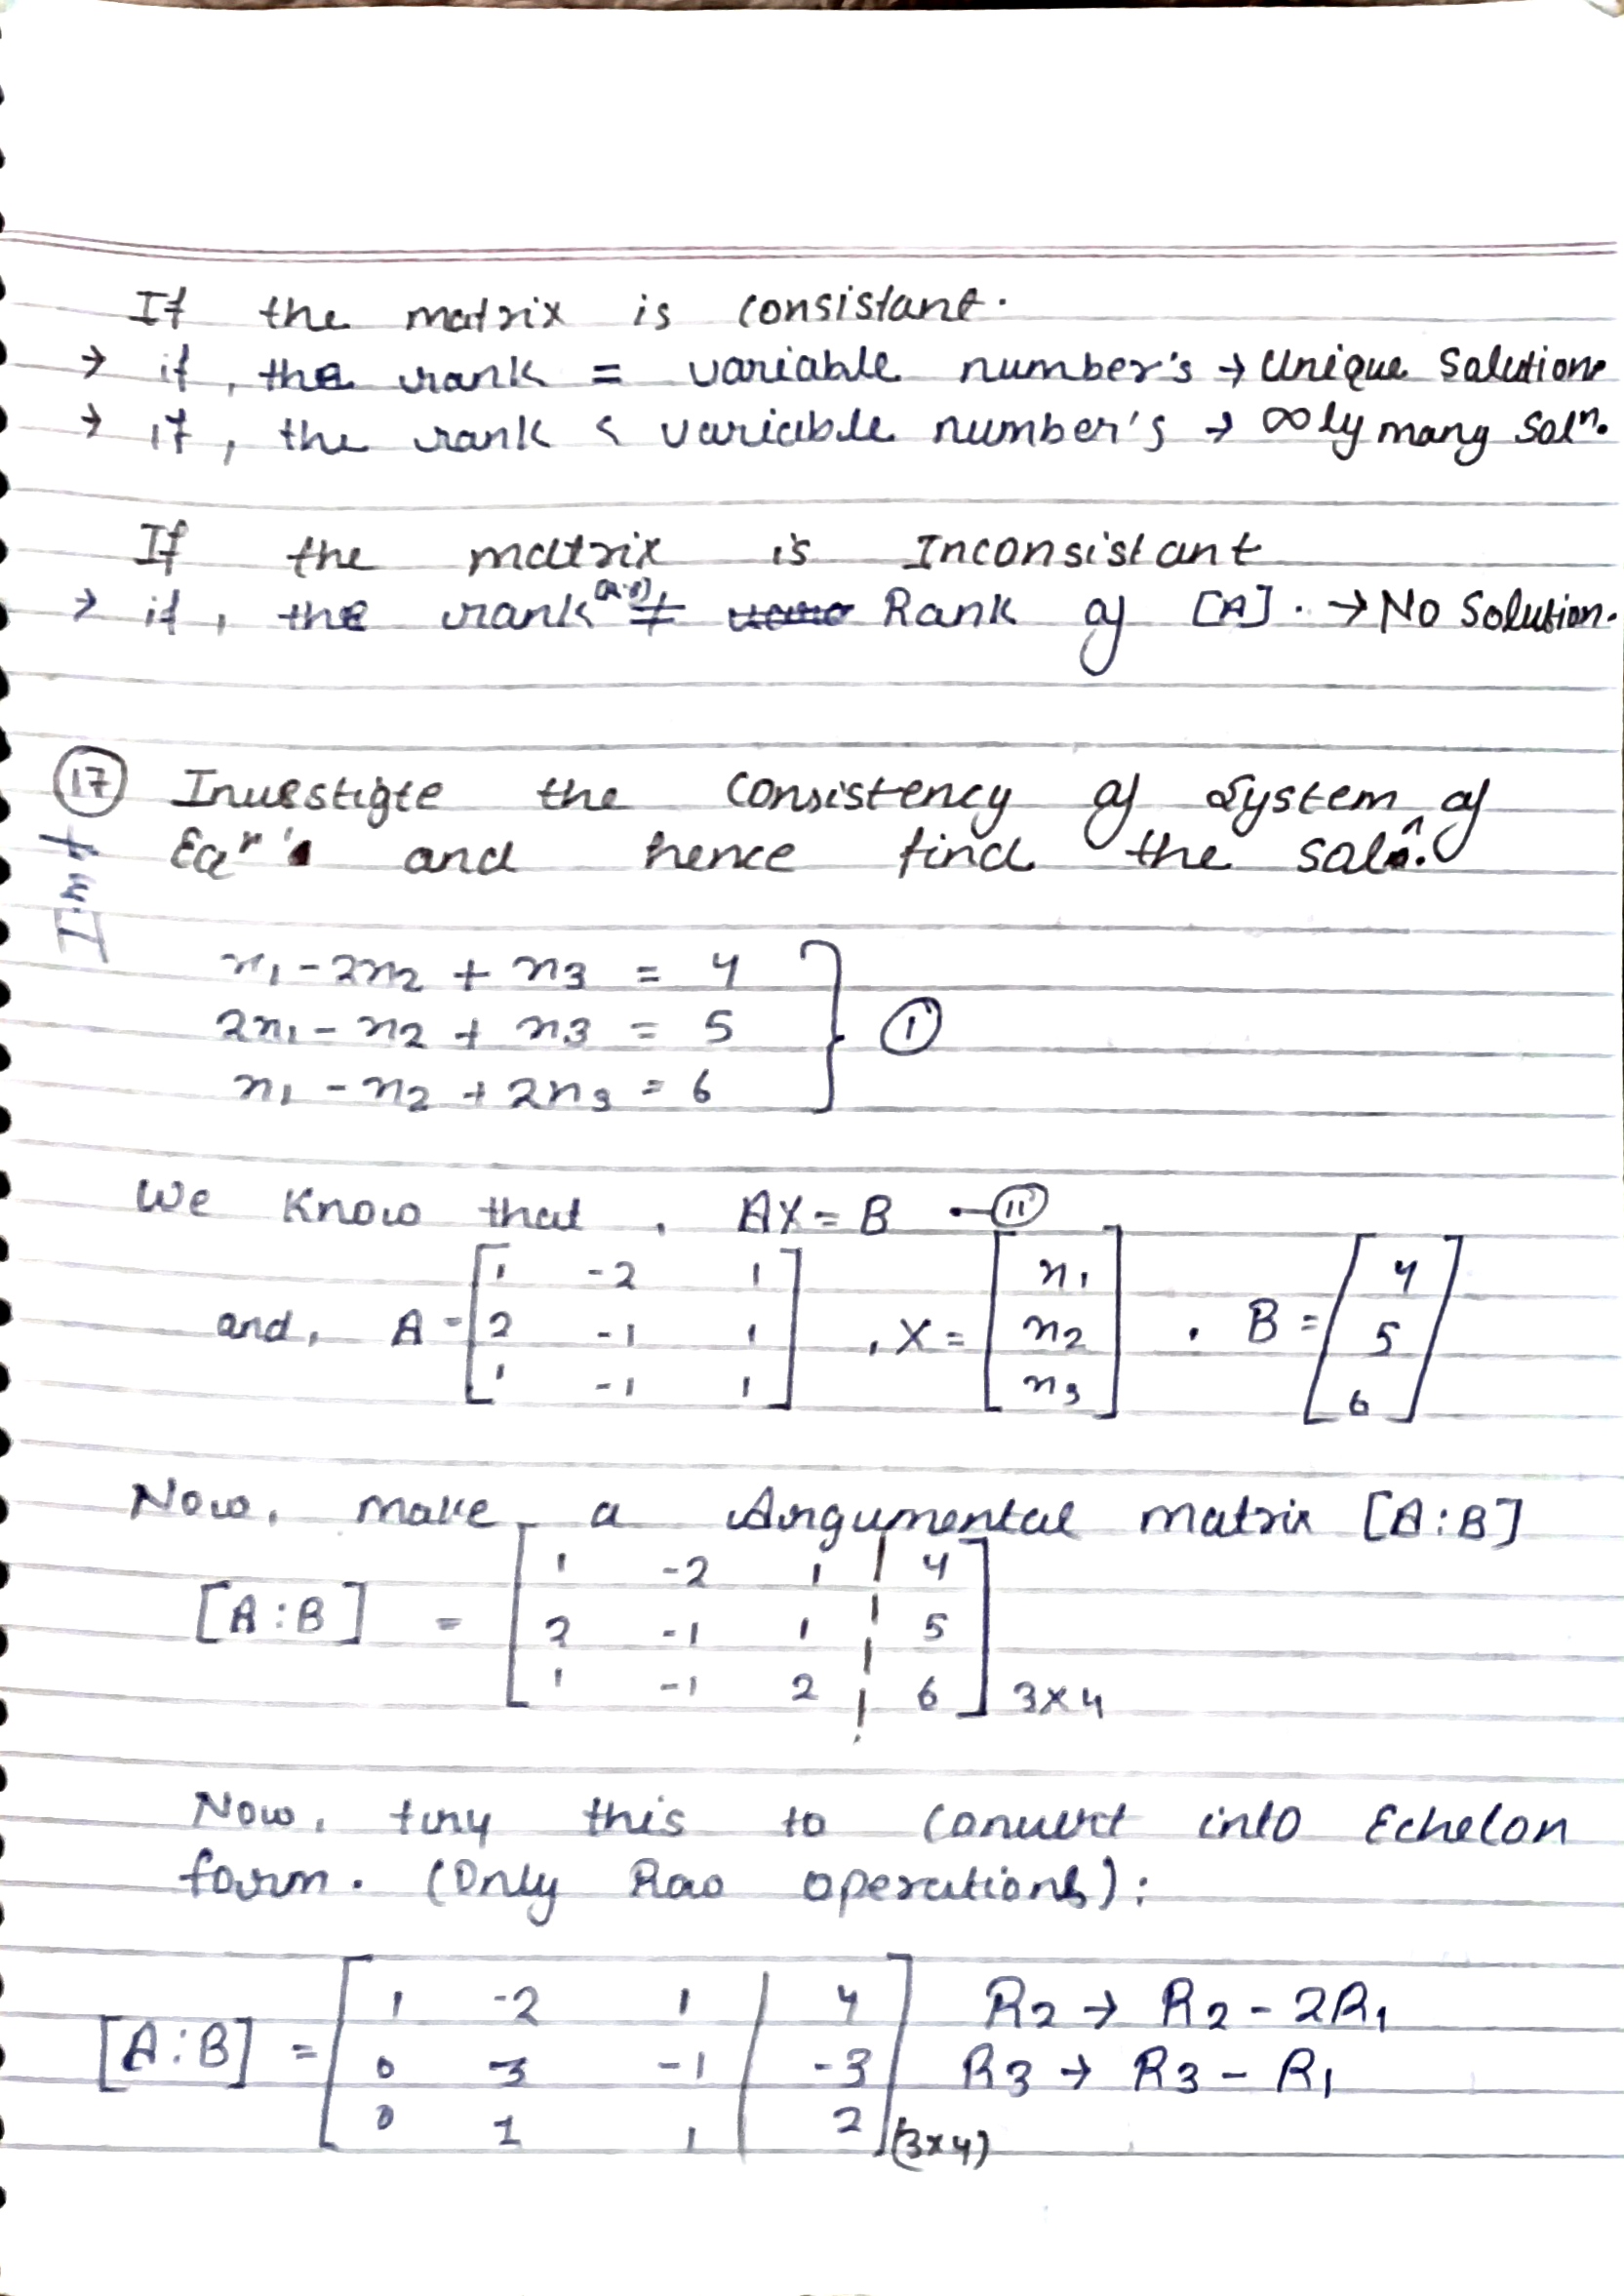 If the matrix is consistant.
→ if, the rank = variable number's → Unique Solution
→ if, the rank < variable number's → ∞ly many Solⁿ.
If the matrix is Inconsistant
→ if, the rank ≠ Rank of [A]. → No Solution.
17 Investigte the consistency of System of
Imt
Eqⁿ's and hence find the solⁿ.
x₁ - 2x₂ + x₃ = 4
2x₁ - x₂ + x₃ = 5 } (1)
x₁ - x₂ + 2x₃ = 6
We Know that, AX = B — (11)
and, A = [1 -2 1; 2 -1 1; 1 -1 1], X = [x₁; x₂; x₃], B = [4; 5; 6]
Now, make a Argumental matrix [A:B]
[A:B] = [1 -2 1 | 4; 2 -1 1 | 5; 1 -1 2 | 6] 3×4
Now, try this to convert into Echelon
form. (Only Row operations):
[A:B] = [1 -2 1 | 4; 0 3 -1 | -3; 0 1 1 | 2] (3×4) R₂ → R₂ - 2R₁
R₃ → R₃ - R₁